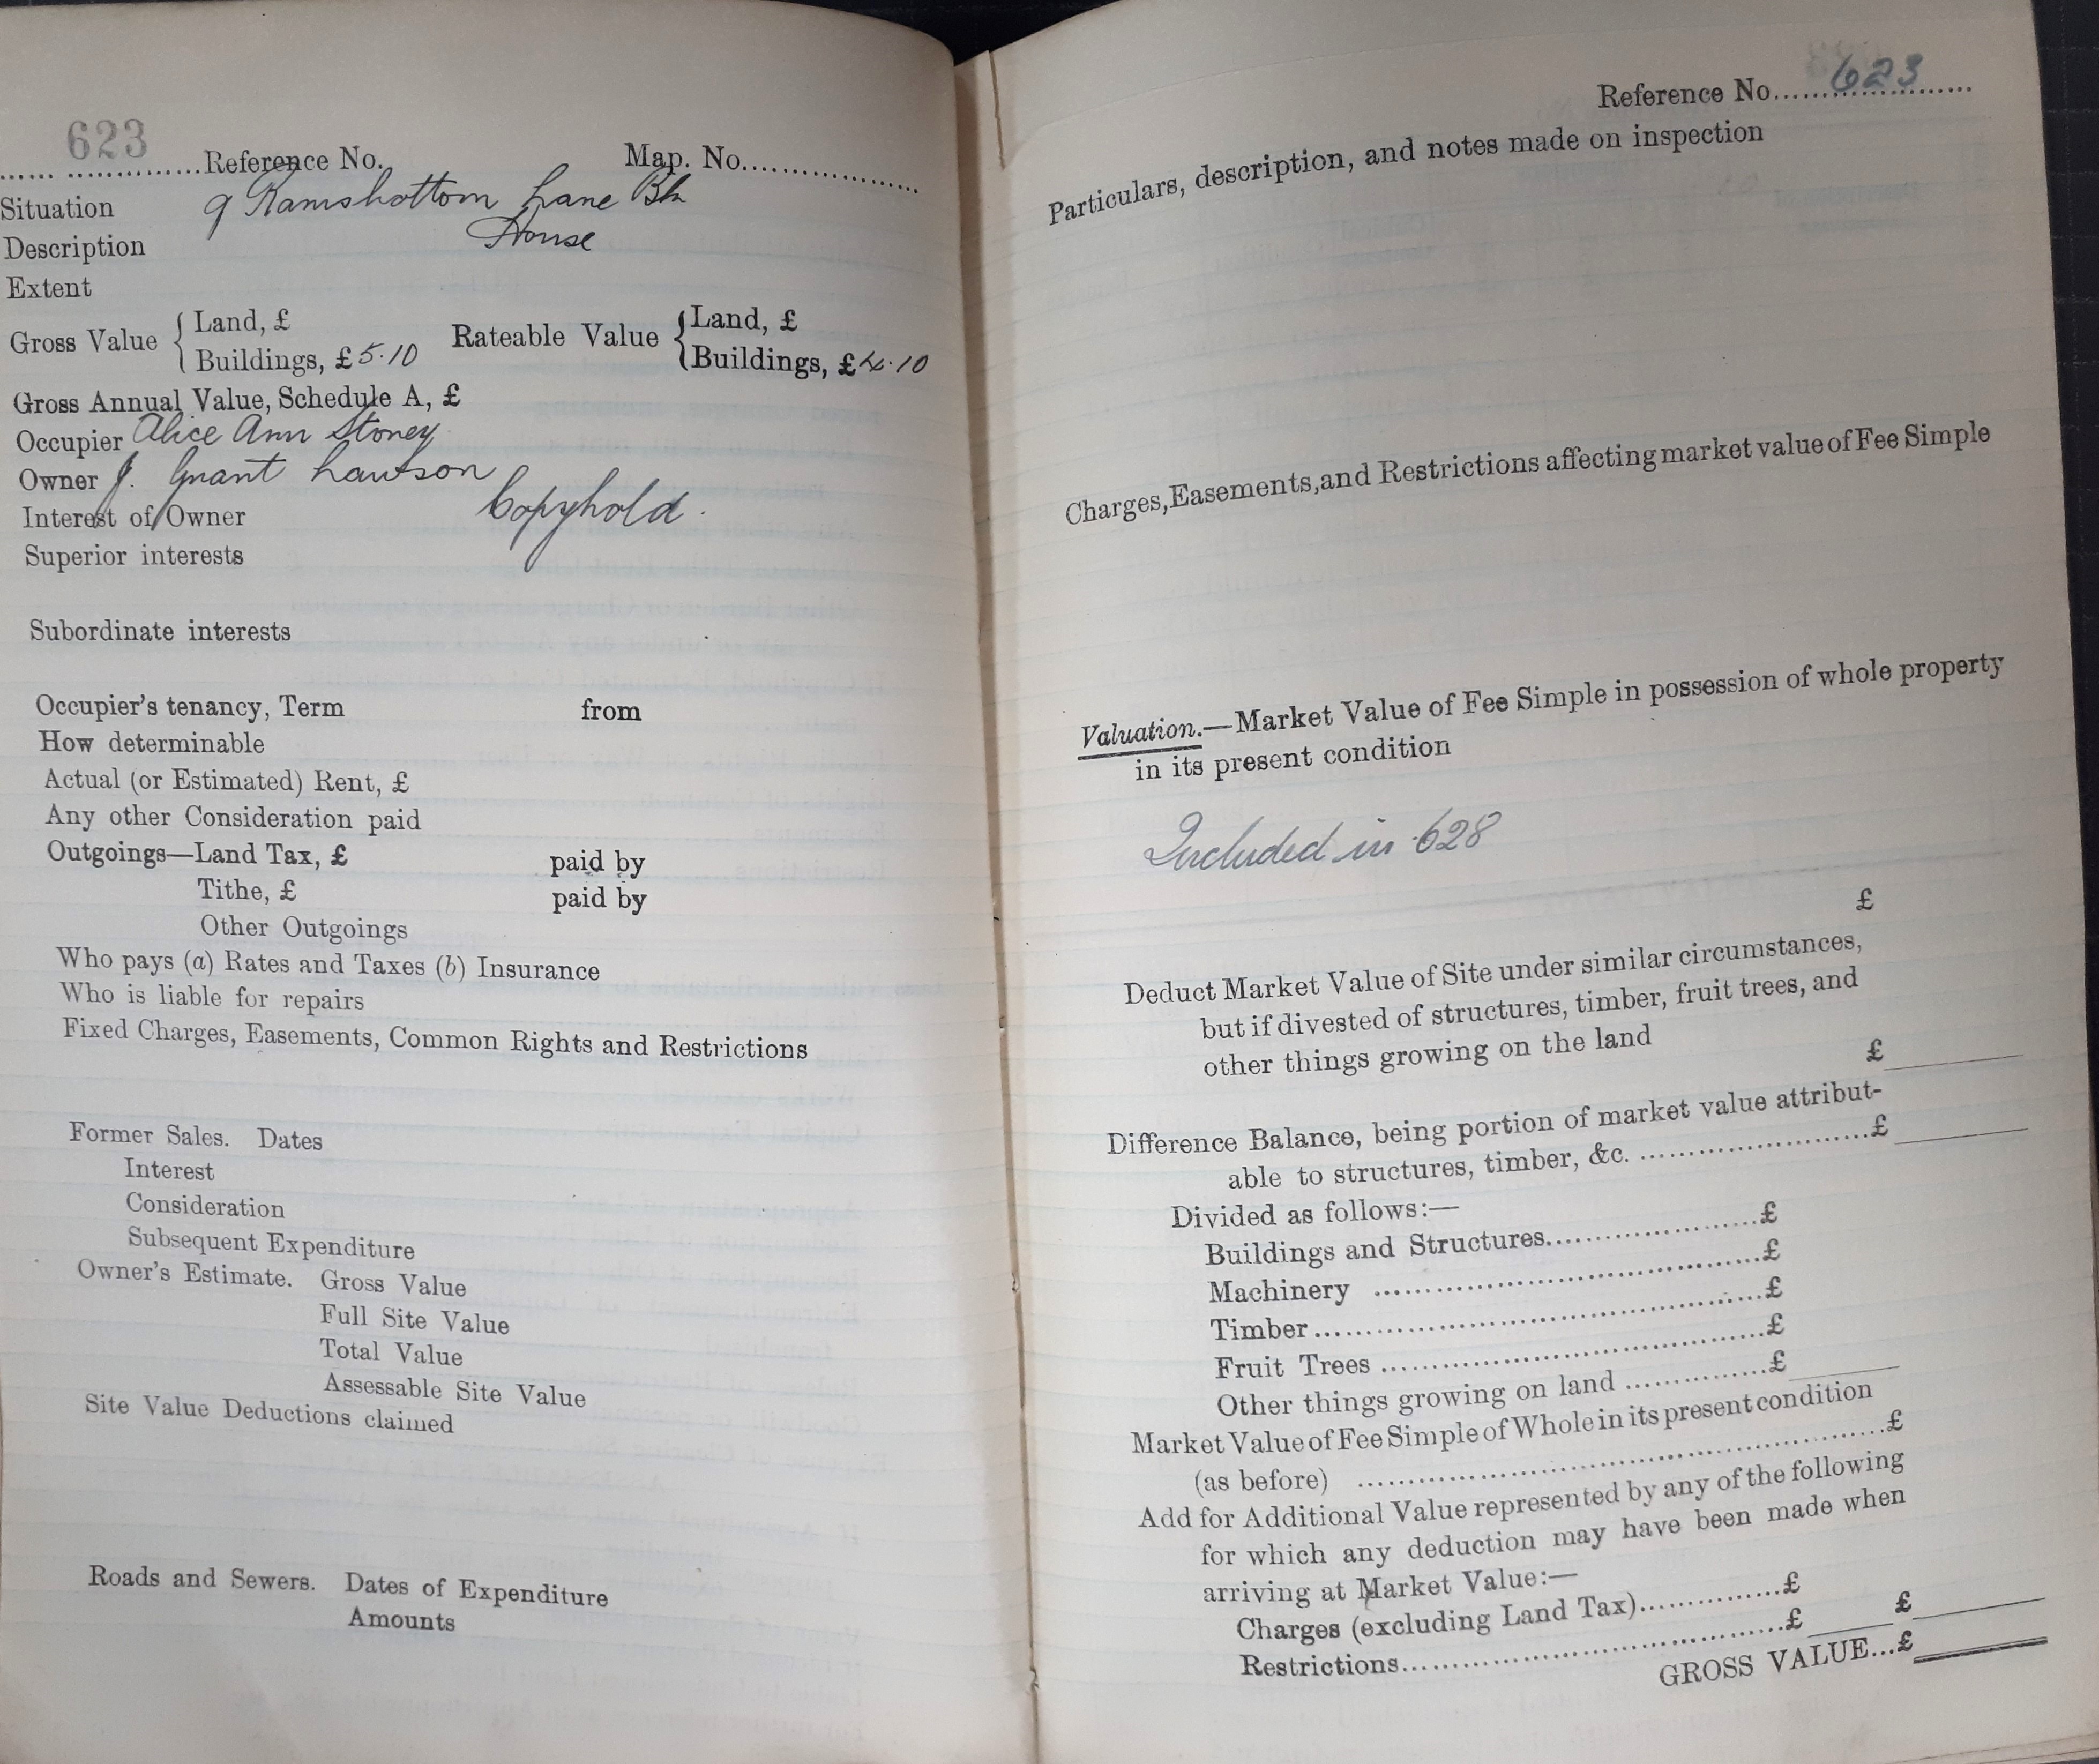 623
Reference No. Map. No.
Situation 9 Ramsbottom Lane Bk
Description House
Extent
Gross Value { Land, £ Rateable Value { Land, £
Buildings, £ 5.10 Buildings, £ 4.10
Gross Annual Value, Schedule A, £
Occupier Alice Ann Stoney
Owner J. Grant Lawson
Interest of Owner Copyhold.
Superior interests
Subordinate interests
Occupier's tenancy, Term from
How determinable
Actual (or Estimated) Rent, £
Any other Consideration paid
Outgoings—Land Tax, £ paid by
Tithe, £ paid by
Other Outgoings
Who pays (a) Rates and Taxes (b) Insurance
Who is liable for repairs
Fixed Charges, Easements, Common Rights and Restrictions
Former Sales. Dates
Interest
Consideration
Subsequent Expenditure
Owner's Estimate. Gross Value
Full Site Value
Total Value
Assessable Site Value
Site Value Deductions claimed
Roads and Sewers. Dates of Expenditure
Amounts
Reference No. 623
Particulars, description, and notes made on inspection
Charges, Easements, and Restrictions affecting market value of Fee Simple
Valuation.—Market Value of Fee Simple in possession of whole property
in its present condition
Included in 628
£
Deduct Market Value of Site under similar circumstances,
but if divested of structures, timber, fruit trees, and
other things growing on the land
£
Difference Balance, being portion of market value attribut-
able to structures, timber, &c. £
Divided as follows:—
Buildings and Structures £
Machinery £
Timber £
Fruit Trees £
Other things growing on land £
Market Value of Fee Simple of Whole in its present condition
(as before) £
Add for Additional Value represented by any of the following
for which any deduction may have been made when
arriving at Market Value:—
Charges (excluding Land Tax) £
Restrictions £ £
GROSS VALUE...£